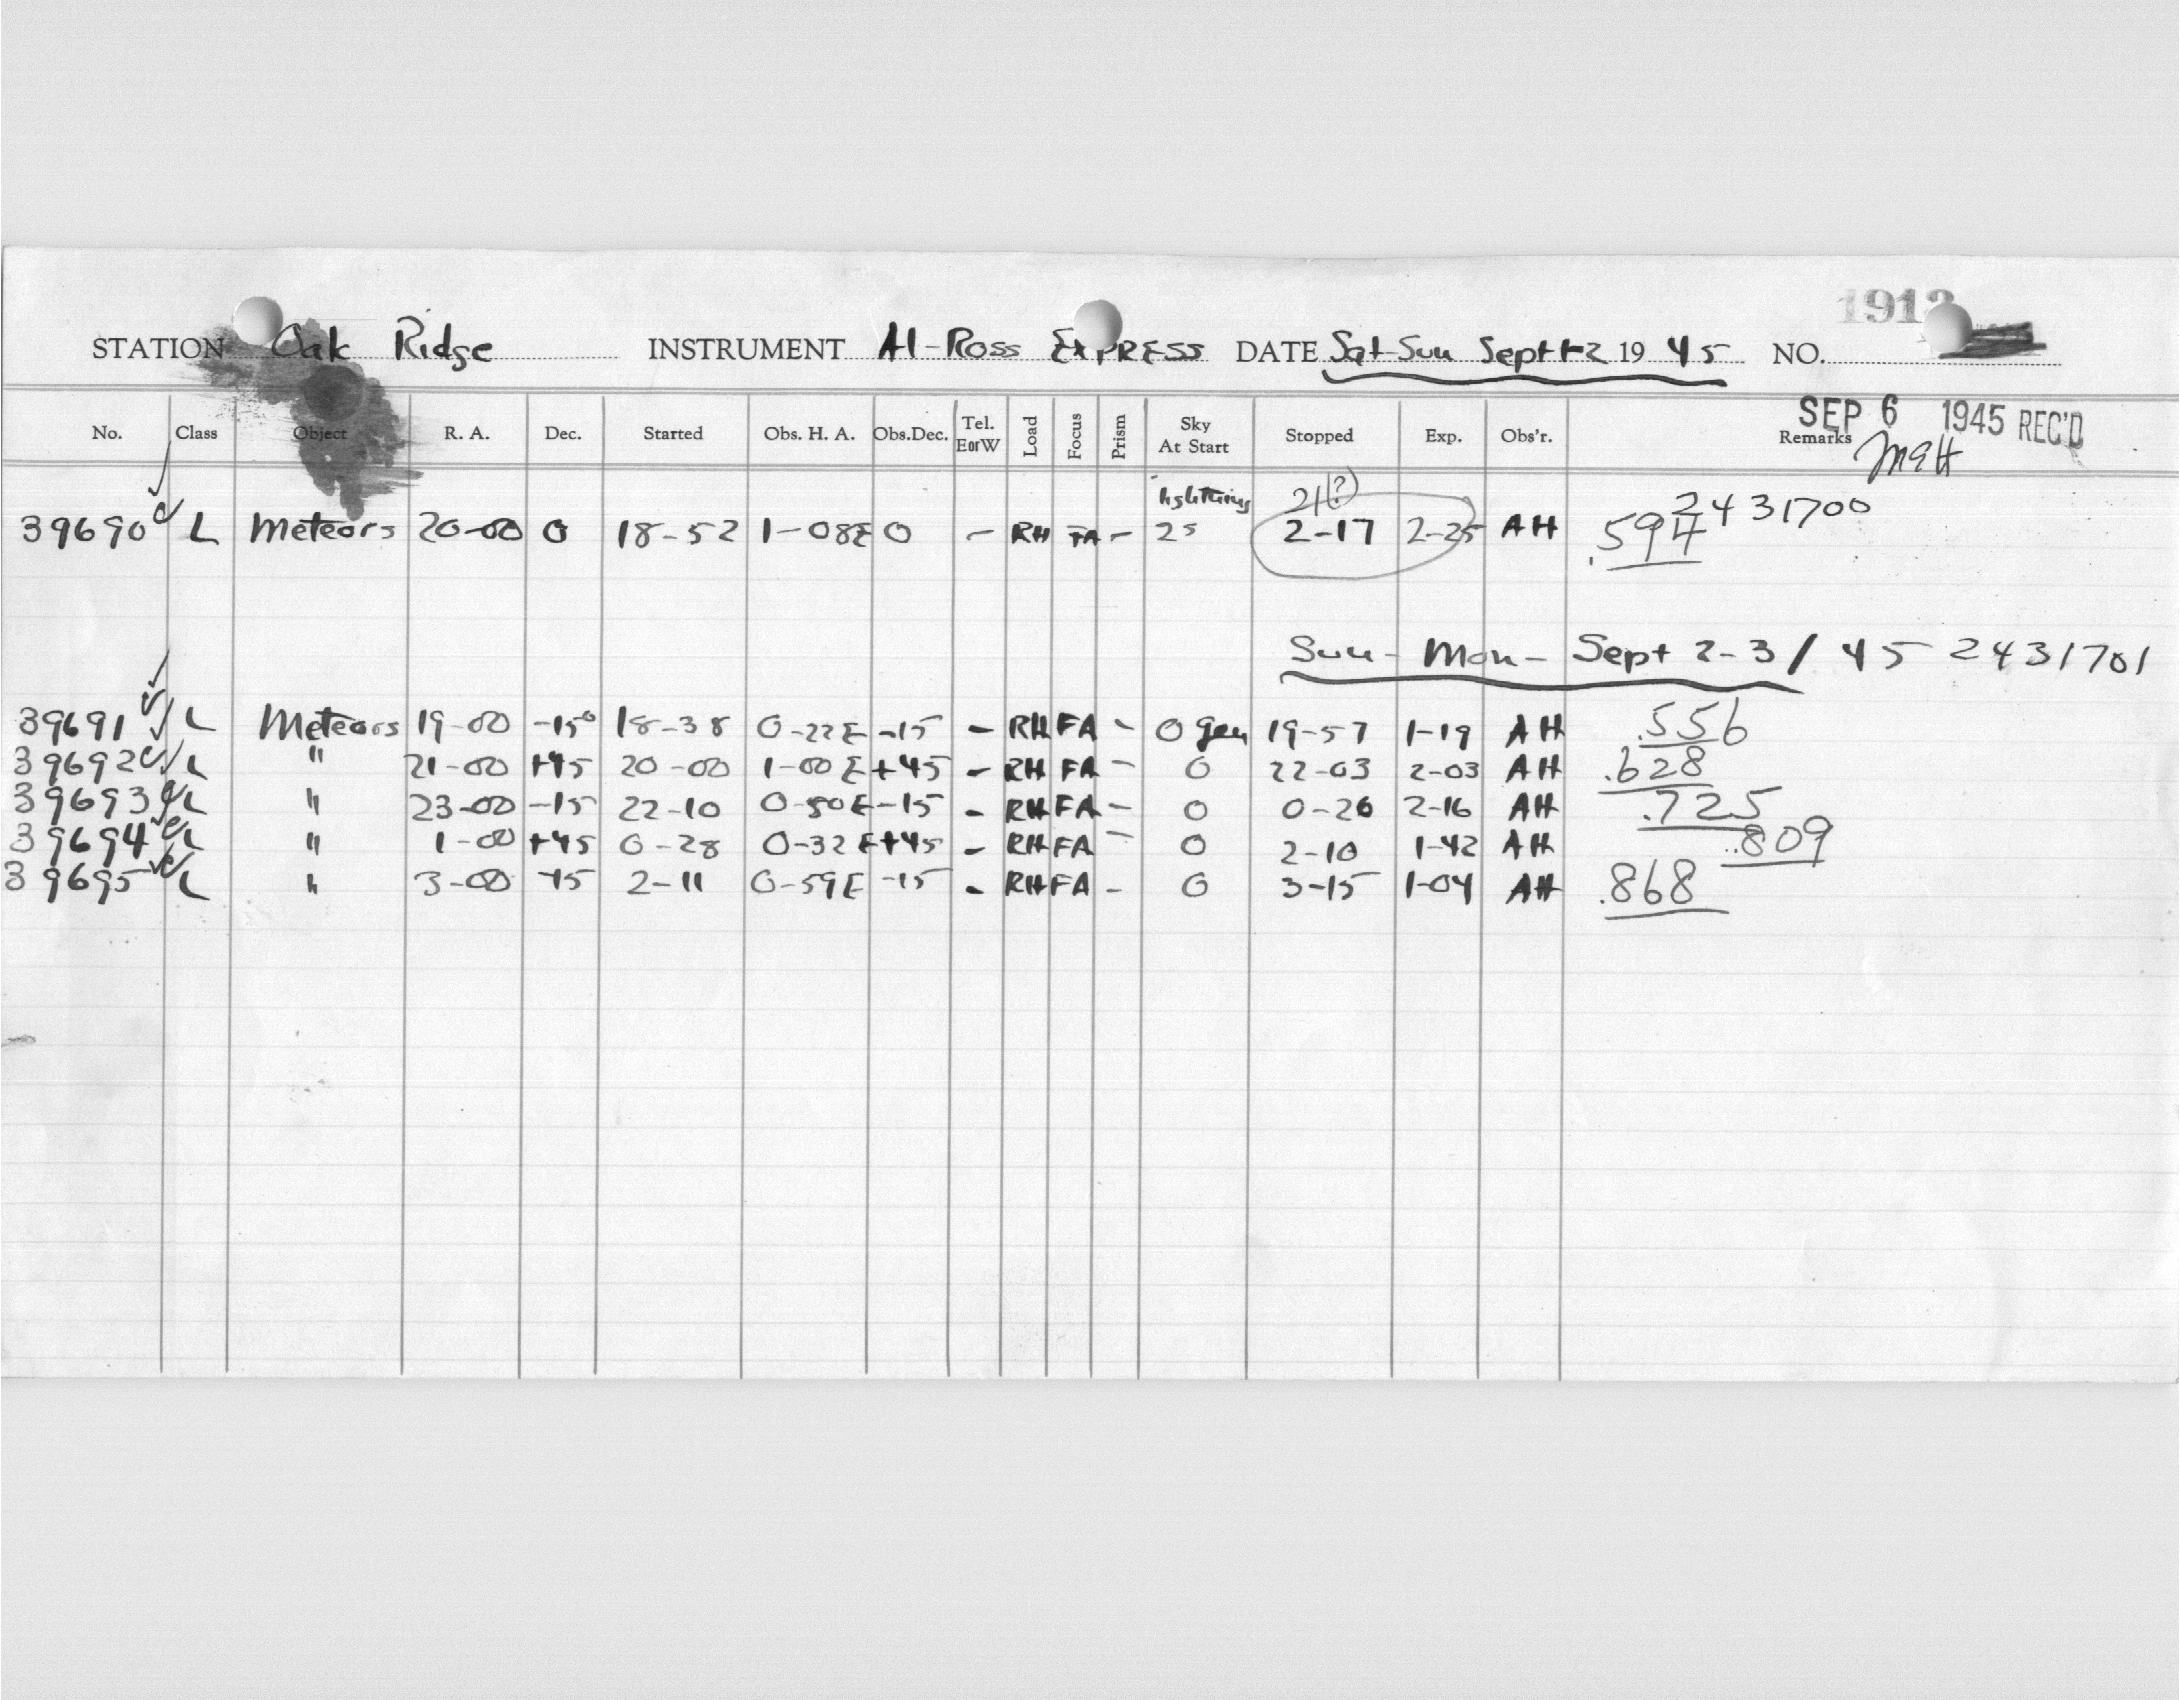 1913
STATION Oak Ridge INSTRUMENT AI-Ross EXPRESS DATE Sat-Sun Sept 1-2 19 45 NO.
SEP 6 1945 REC'D
No. Class Object R. A. Dec. Started Obs. H. A. Obs.Dec. Tel. EorW Load Focus Prism Sky At Start Stopped Exp. Obs'r. Remarks
lightning 21(?) 2431700
39690 L Meteors 20-00 0 18-52 1-08E 0 - RH FA - 25 2-17 2-25 AH .594
Sun-Mon- Sept 2-3/45 2431701
39691 L Meteors 19-00 -15° 18-38 0-22E -15 - RH FA - 0 gen 19-57 1-19 AH .556
39692 L " 21-00 +45 20-00 1-00E +45 - RH FA - 0 22-03 2-03 AH .628
39693 L " 23-00 -15 22-10 0-50E -15 - RH FA - 0 0-26 2-16 AH .725
39694 L " 1-00 +45 0-28 0-32E +45 - RH FA - 0 2-10 1-42 AH .809
39695 L " 3-00 -15 2-11 0-59E -15 - RH FA - 0 3-15 1-04 AH .868